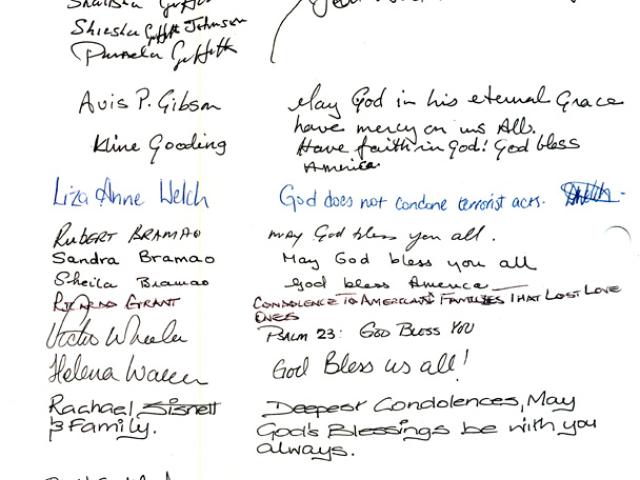 Shiesha Griffith Johnson
Pamela Griffith
Avis P. Gibson May God in his eternal Grace
have mercy on us All.
Kline Gooding Have faith in God! God bless
America
Liza Anne Welch God does not condone terrorist acts.
RUBERT BRAMAO may God bless you all.
Sandra Bramao May God bless you all
Sheila Bramao God bless America
GRANT CONDOLENCE TO AMERICAN FAMILIES THAT LOST LOVE
ONES
Victor Wheeler PSALM 23: GOD BLESS YOU
Helena God Bless us all!
Rachael Sisnett Deepest Condolences, May
& Family. God's Blessings be with you
always.